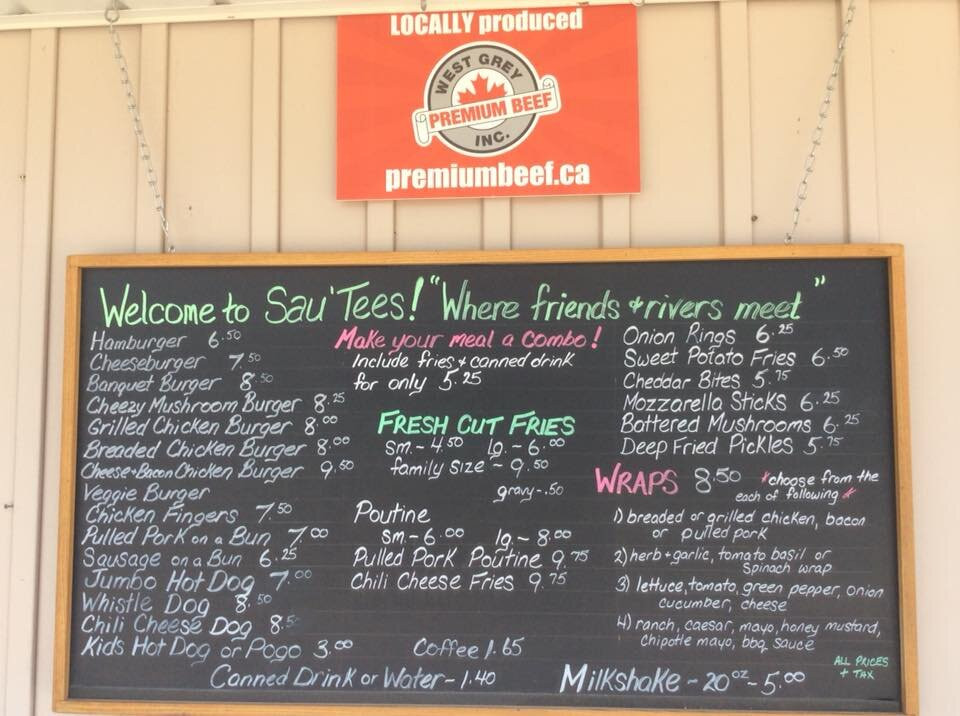 LOCALLY produced
WEST GREY
PREMIUM BEEF
INC.
premiumbeef.ca
Welcome to Sau'Tees! "Where friends + rivers meet"
Hamburger 6.50
Cheeseburger 7.50
Banquet Burger 8.50
Cheezy Mushroom Burger 8.25
Grilled Chicken Burger 8.00
Breaded Chicken Burger 8.00
Cheese+Bacon Chicken Burger 9.50
Veggie Burger
Chicken Fingers 7.50
Pulled Pork on a Bun 7.00
Sausage on a Bun 6.25
Jumbo Hot Dog 7.00
Whistle Dog 8.50
Chili Cheese Dog 8.50
Kids Hot Dog or Pogo 3.00
Make your meal a combo!
Include fries + canned drink
for only 5.25
FRESH CUT FRIES
sm - 4.50 lg. - 6.00
family size - 9.50
gravy - .50
Poutine
sm - 6.00 lg - 8.00
Pulled Pork Poutine 9.75
Chili Cheese Fries 9.75
Coffee 1.65
Onion Rings 6.25
Sweet Potato Fries 6.50
Cheddar Bites 5.75
Mozzarella Sticks 6.25
Battered Mushrooms 6.25
Deep Fried Pickles 5.75
WRAPS 8.50 *choose from the
each of following*
1) breaded or grilled chicken, bacon
or pulled pork
2) herb + garlic, tomato basil or
spinach wrap
3) lettuce, tomato, green pepper, onion
cucumber, cheese
4) ranch, caesar, mayo, honey mustard,
chipotle mayo, bbq sauce
ALL PRICES
+ TAX
Canned Drink or Water - 1.40
Milkshake - 20oz - 5.00